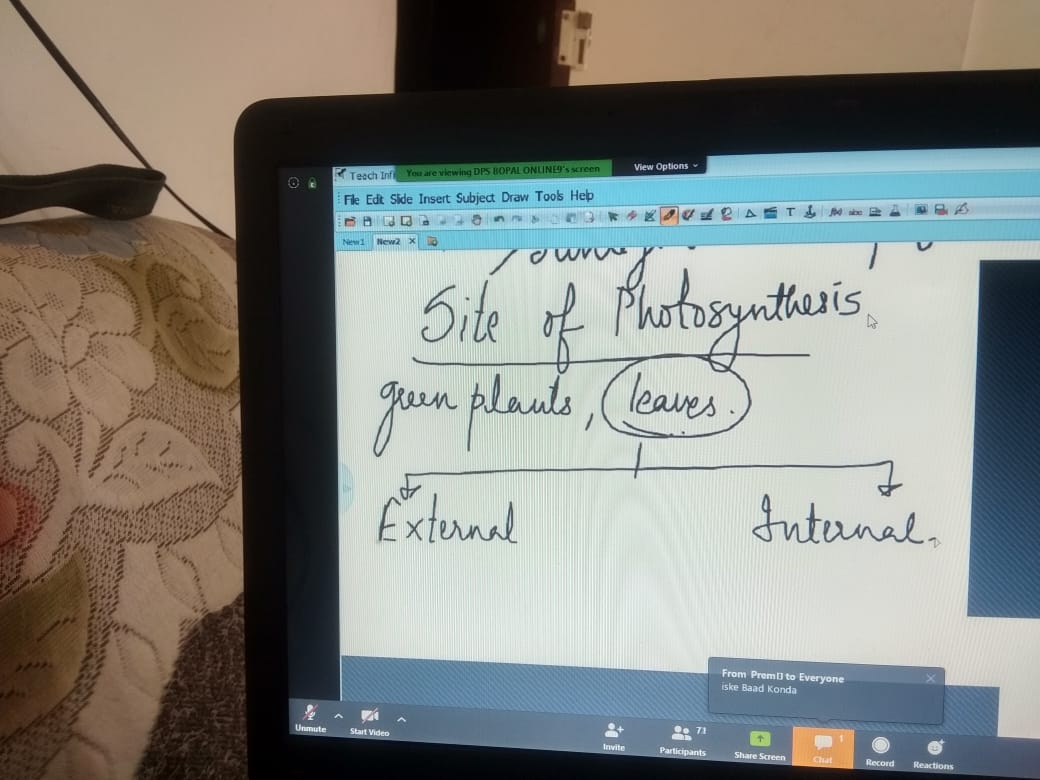 You are viewing DPS BOPAL ONLINE9's screen
View Options
Teach Infi
File Edit Slide Insert Subject Draw Tools Help
New1 New2
Site of Photosynthesis
green plants, leaves.
External
Internal.
From Prem to Everyone
iske Baad Konda
Unmute
Start Video
Invite
73
Participants
Share Screen
1
Chat
Record
Reactions